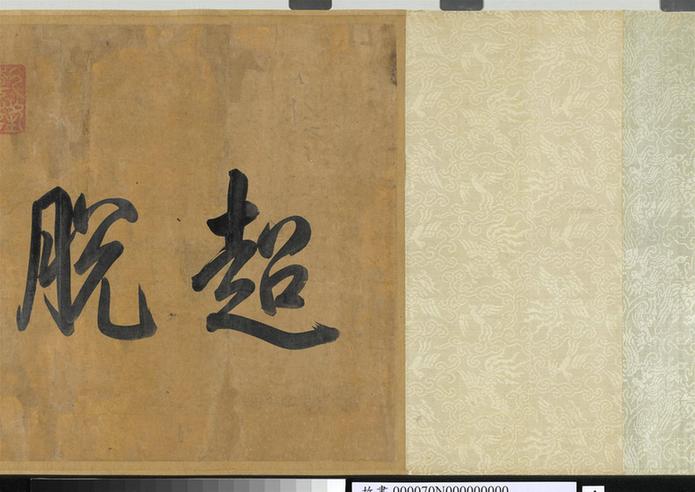 超脫
故書000070N000000000